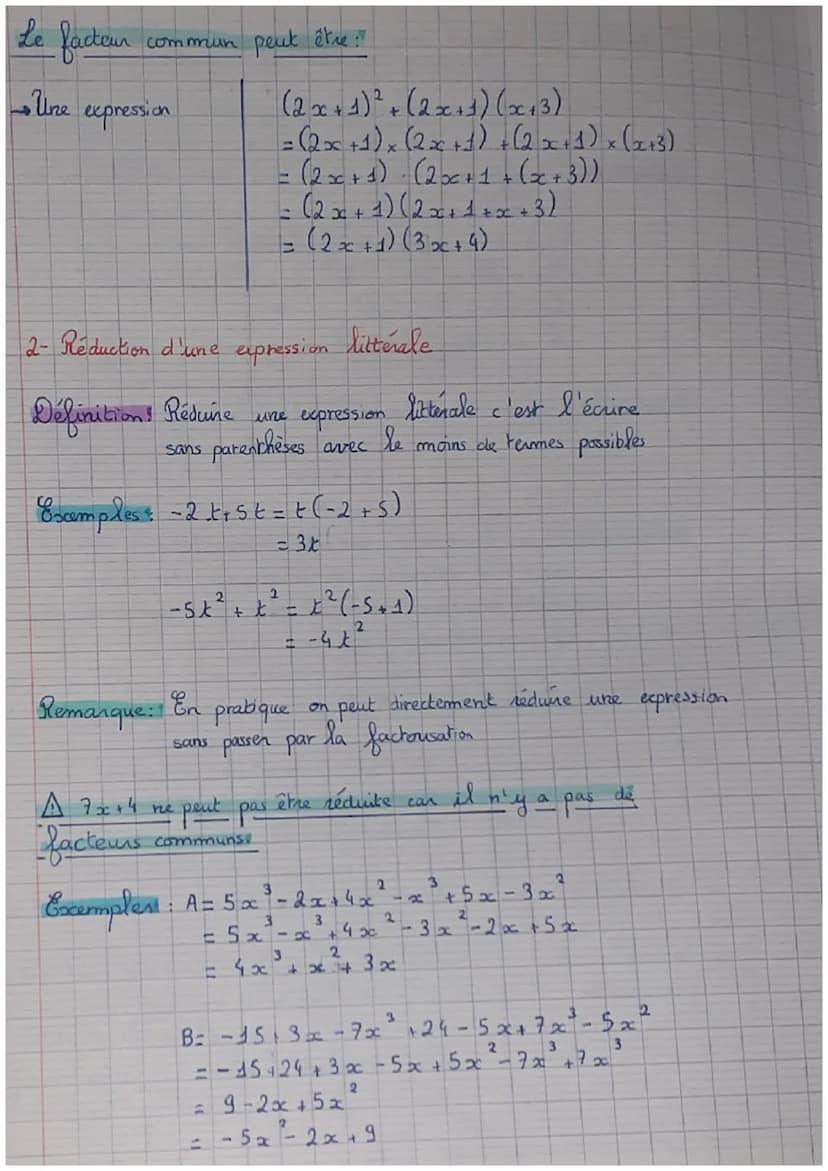 Le facteur commun peut être :
→ Une expression
(2x+1)² + (2x+1)(x+3)
= (2x+1) × (2x+1) + (2x+1) × (x+3)
= (2x+1) · (2x+1 + (x+3))
= (2x+1)(2x+1+x+3)
= (2x+1)(3x+4)
2- Réduction d'une expression littérale
Définition : Réduire une expression littérale c'est l'écrire
sans parenthèses avec le moins de termes possibles
Exemples : -2t+5t = t(-2+5)
= 3t
-5t² + t² = t²(-5+1)
= -4t²
Remarque : En pratique on peut directement réduire une expression
sans passer par la factorisation
⚠ 7x+4 ne peut pas être réduite car il n'y a pas de
facteurs communs.
Exemples : A= 5x³-2x+4x²-x³+5x-3x²
= 5x³-x³+4x²-3x²-2x+5x
= 4x³+x²+3x
B= -15+3x-7x³+24-5x+7x³-5x²
= -15+24+3x-5x+5x²-7x³+7x³
= 9-2x+5x²
= -5x²-2x+9